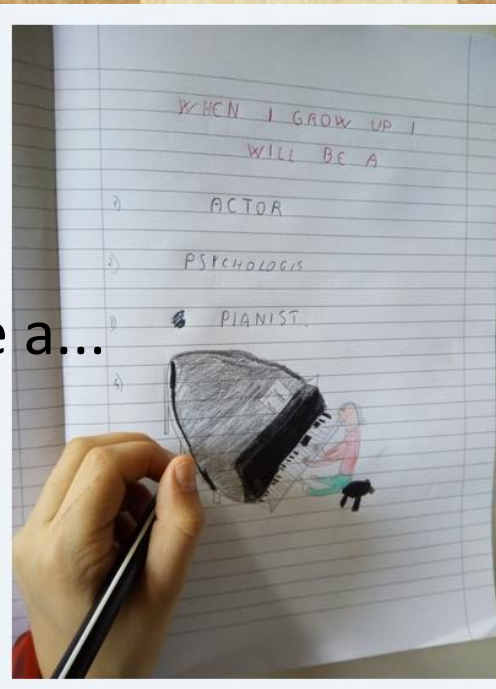 WHEN I GROW UP I
WILL BE A
1) ACTOR
2) PSYCHOLOGIS
3) PIANIST.
4)
e a...